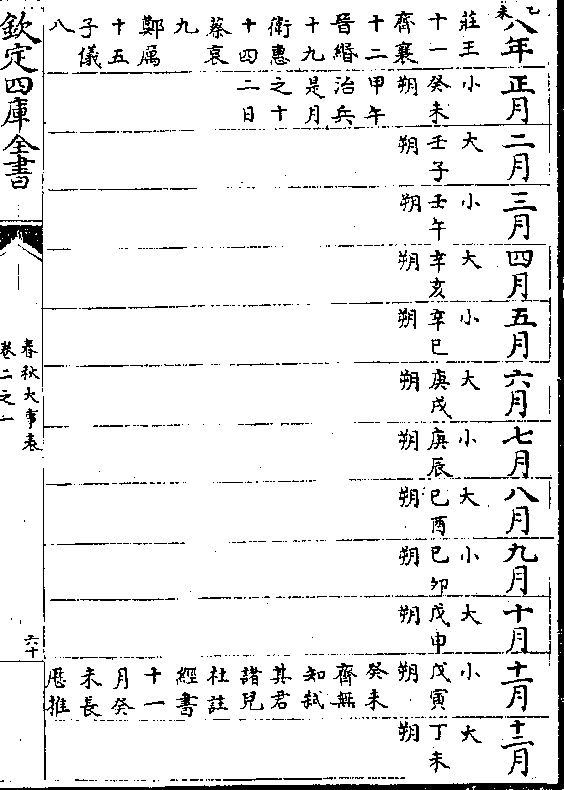 乙未
八年
莊王
十一
齊襄
十二
晉緡
十九
衛惠
十四
蔡哀
九
鄭厲
十五
子儀
八
正月
小
癸未
朔
甲午
治兵
是月
之十
二日
二月
大
壬子
朔
三月
小
壬午
朔
四月
大
辛亥
朔
五月
小
辛巳
朔
六月
大
庚戌
朔
七月
小
庚辰
朔
八月
大
己酉
朔
九月
小
己卯
朔
十月
大
戊申
朔
十一月
小
戊寅
朔
癸未
齊無
知弒
其君
諸兒
杜註
經書
十一
月癸
未長
厯推
十二月
大
丁未
朔
欽定四庫全書
春秋大事表
卷二之一
六十